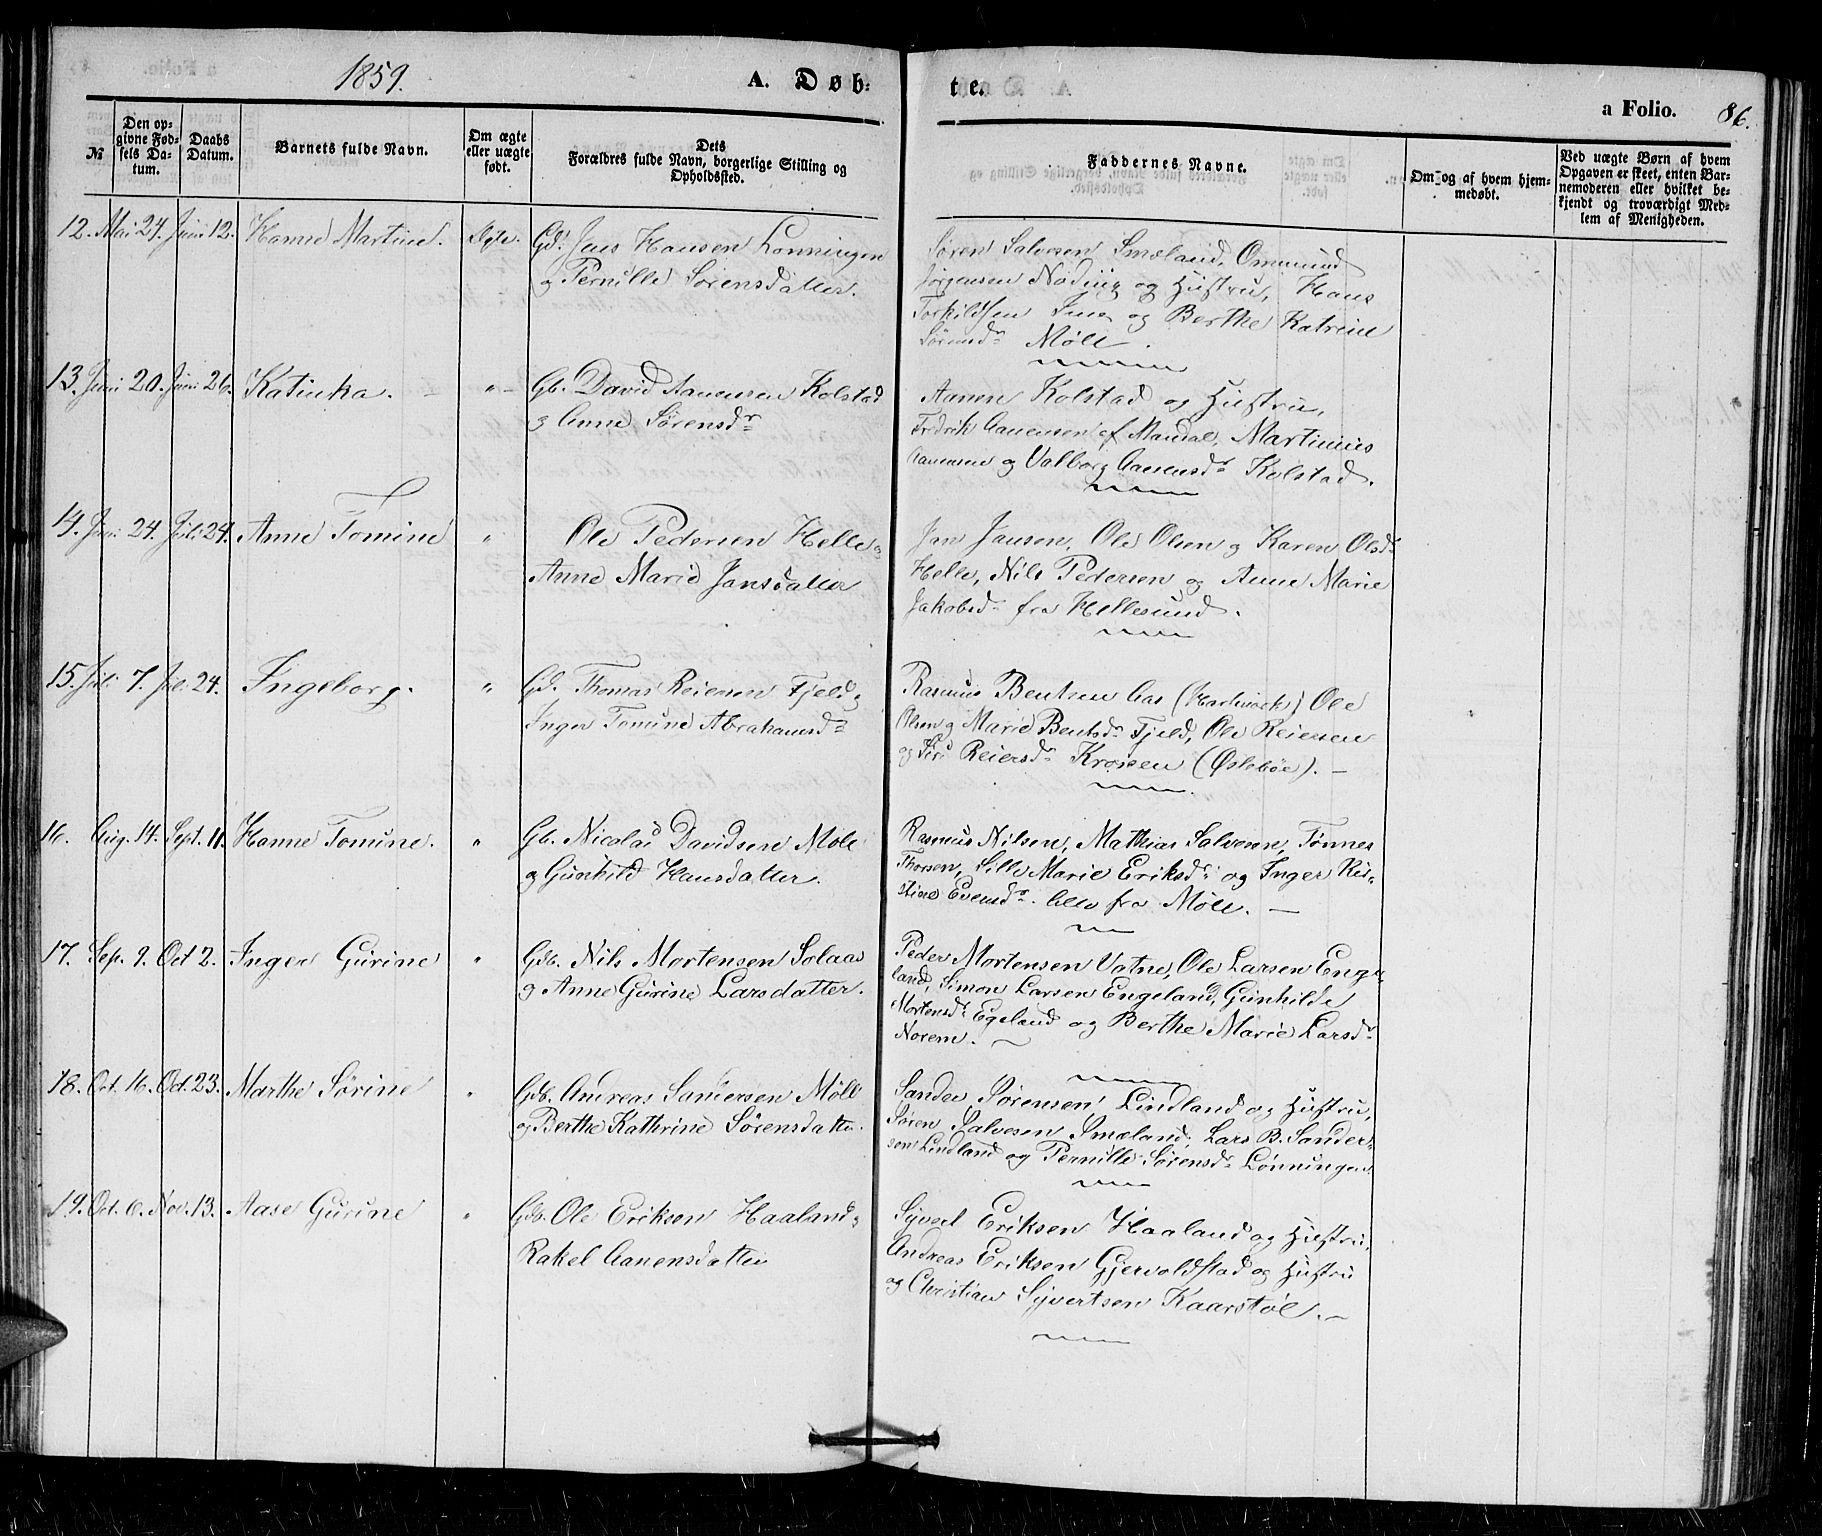 1859.
A. Døb-
te.
a Folio. 86.
№
Den op-
givne Fød-
sels Da-
tum.
Daabs
Datum.
Barnets fulde Navn.
Om ægte
eller uægte
født.
Dets
Forældres fulde Navn, borgerlige Stilling og
Opholdssted.
Faddernes Navne.
Om og af hvem hjem-
medøbt.
Ved uægte Børn af hvem
Opgaven er skeet, enten Bar-
nemoderen eller hvilket be-
kjendt og troværdigt Med-
lem af Menigheden.
12. Mai 27. Juni 12. Hanne Martine. Ægte. Gd. Jens Hansen Lonningen
og Pernille Sørensdatter.
Søren Salvesen Smæland, Ommund
Jørgensen Nöding og Hustru, Hans
Torkildsen og Berthe Katrine
Sørensdr Møll.
13. Juni 20. Juni 26. Katinka. " Gb. David Aanensen Kolstad
og Anne Sørensdr
Aanen Kolstad og Hustru,
Fredrik Aanensen af Mandal, Martinius
Aanensen og Valborg Aanensdr Kolstad.
14. Juni 24. Juli 24. Anne Tomine " Ole Pedersen Helle og
Anne Marie Jansdatter
Jan Jansen, Ole Olsen og Karen Olsdr
Helle, Nils Pedersen og Anne Marie
Jakobsdr fra Hellesund.
15. Juli 7. Juli 24. Ingeborg. " Gd. Thomas Reiersen Fjeld og
Inger Tomine Abrahamsdr
Rasmus Bentsen Aas (Hartmark) Ole
Olsen og Marie Bentsdr Fjeld, Ole Reiersen
og Siri Reiersdr Krossen (Øslebøe). –
16. Aug. 14. Sept. 11. Hanne Tomine. " Gb. Nicolai Davidsen Møll
og Gunhild Hansdatter.
Rasmus Nilsen, Mathias Salvesen, Tønnes
Thorsen, Sille Marie Eriksdr og Inger Kri-
stine Evensdr. alle fra Møll. –
17. Sep. 9. Oct 2. Inger Gurine " Gdb. Nils Mortensen Solaas
og Anne Gurine Larsdatter.
Peder Mortensen Vatne, Ole Larsen Enge-
land, Simon Larsen Engeland, Gunhilde
Mortensdr Egeland og Berthe Marie Larsdr
Norem.
18. Oct. 16. Oct. 23. Marthe Sørine " Gdb. Andreas Sandersen Møll
og Berthe Kathrine Sørensdatter.
Sander Sørensen Lindland og Hustru,
Søren Salvesen Smæland, Lars B. Sander-
sen Lindland og Pernille Sørensdr Lønningen.
19. Oct. 6. Nov. 13. Aase Gurine " Gdb. Ole Eriksen Haaland og
Rakel Aanensdatter
Syvert Eriksen Haaland og Hustru,
Andreas Eriksen Gjervoldstad og Hustru
og Christian Syvertsen Kaarstøl. –